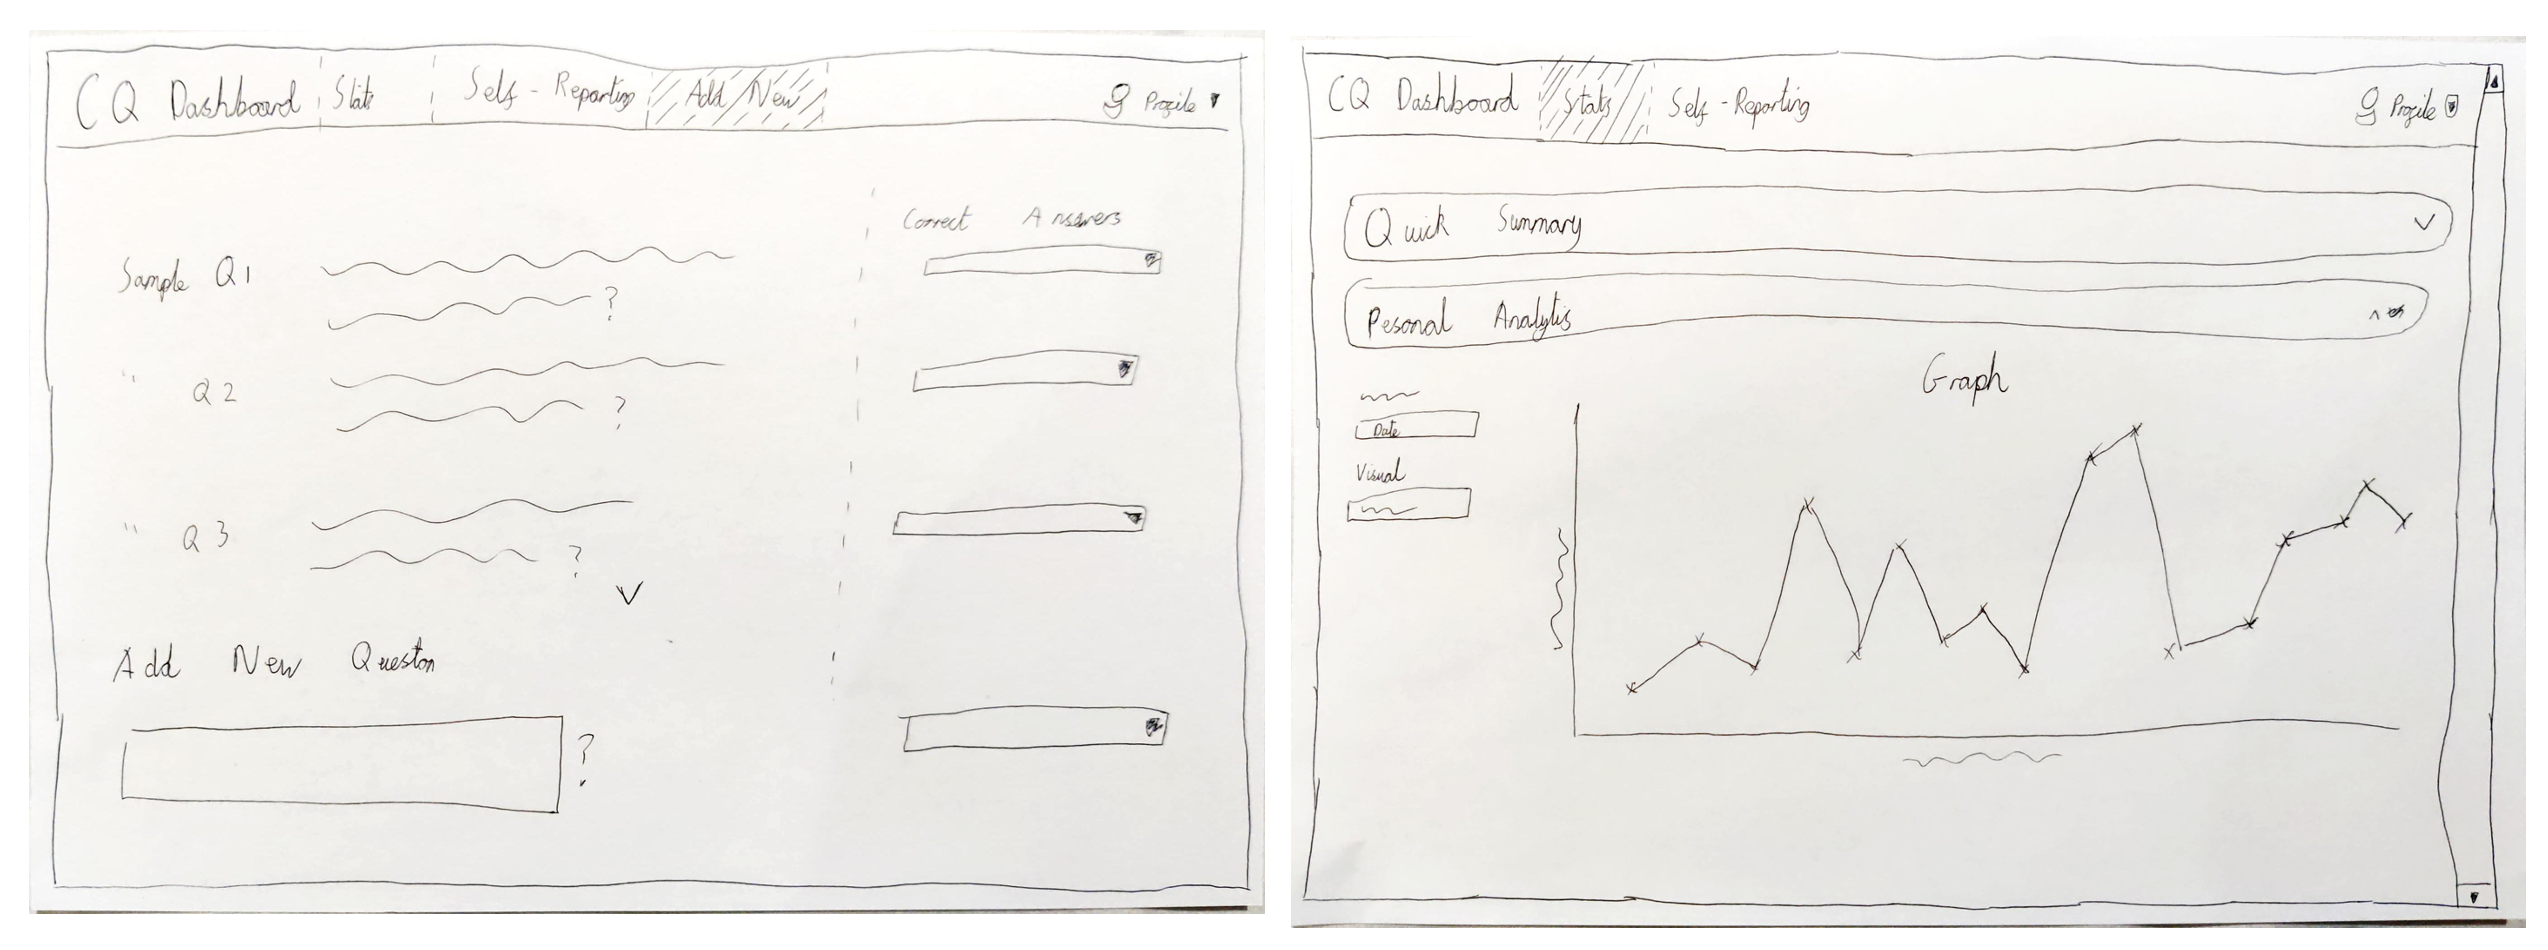 CQ Dashboard Stats Self-Reporting Add New Profile
Correct Answers
Sample Q1
?
" Q2
?
" Q3
?
Add New Queston
?
CQ Dashboard Stats Self-Reporting Profile
Quick Summary
Pesonal Analytis
Graph
Date
Visual